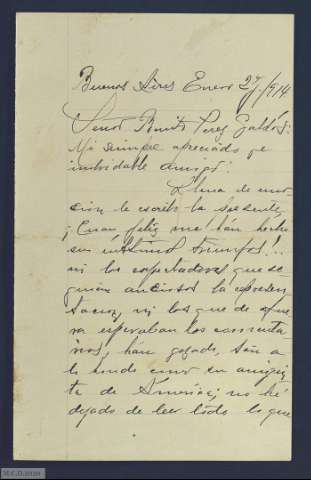 Buenos Aires Enero 27/914
Señor Benito Perez Galdós:
Mi siempre apreciado y
inolvidable amigo:
Llena de emo-
cion le escribo la presente,
¡Cuan feliz me hán hecho
sus ultimos triunfos!...
ni los espectadores que se-
guian ansiosos la represen
tacion, ni los que de afue
ra esperaban los comenta
rios, hán gozado, sin a
to la
de America; no hé
dejado de leer todo lo que
M.C.D. 2020